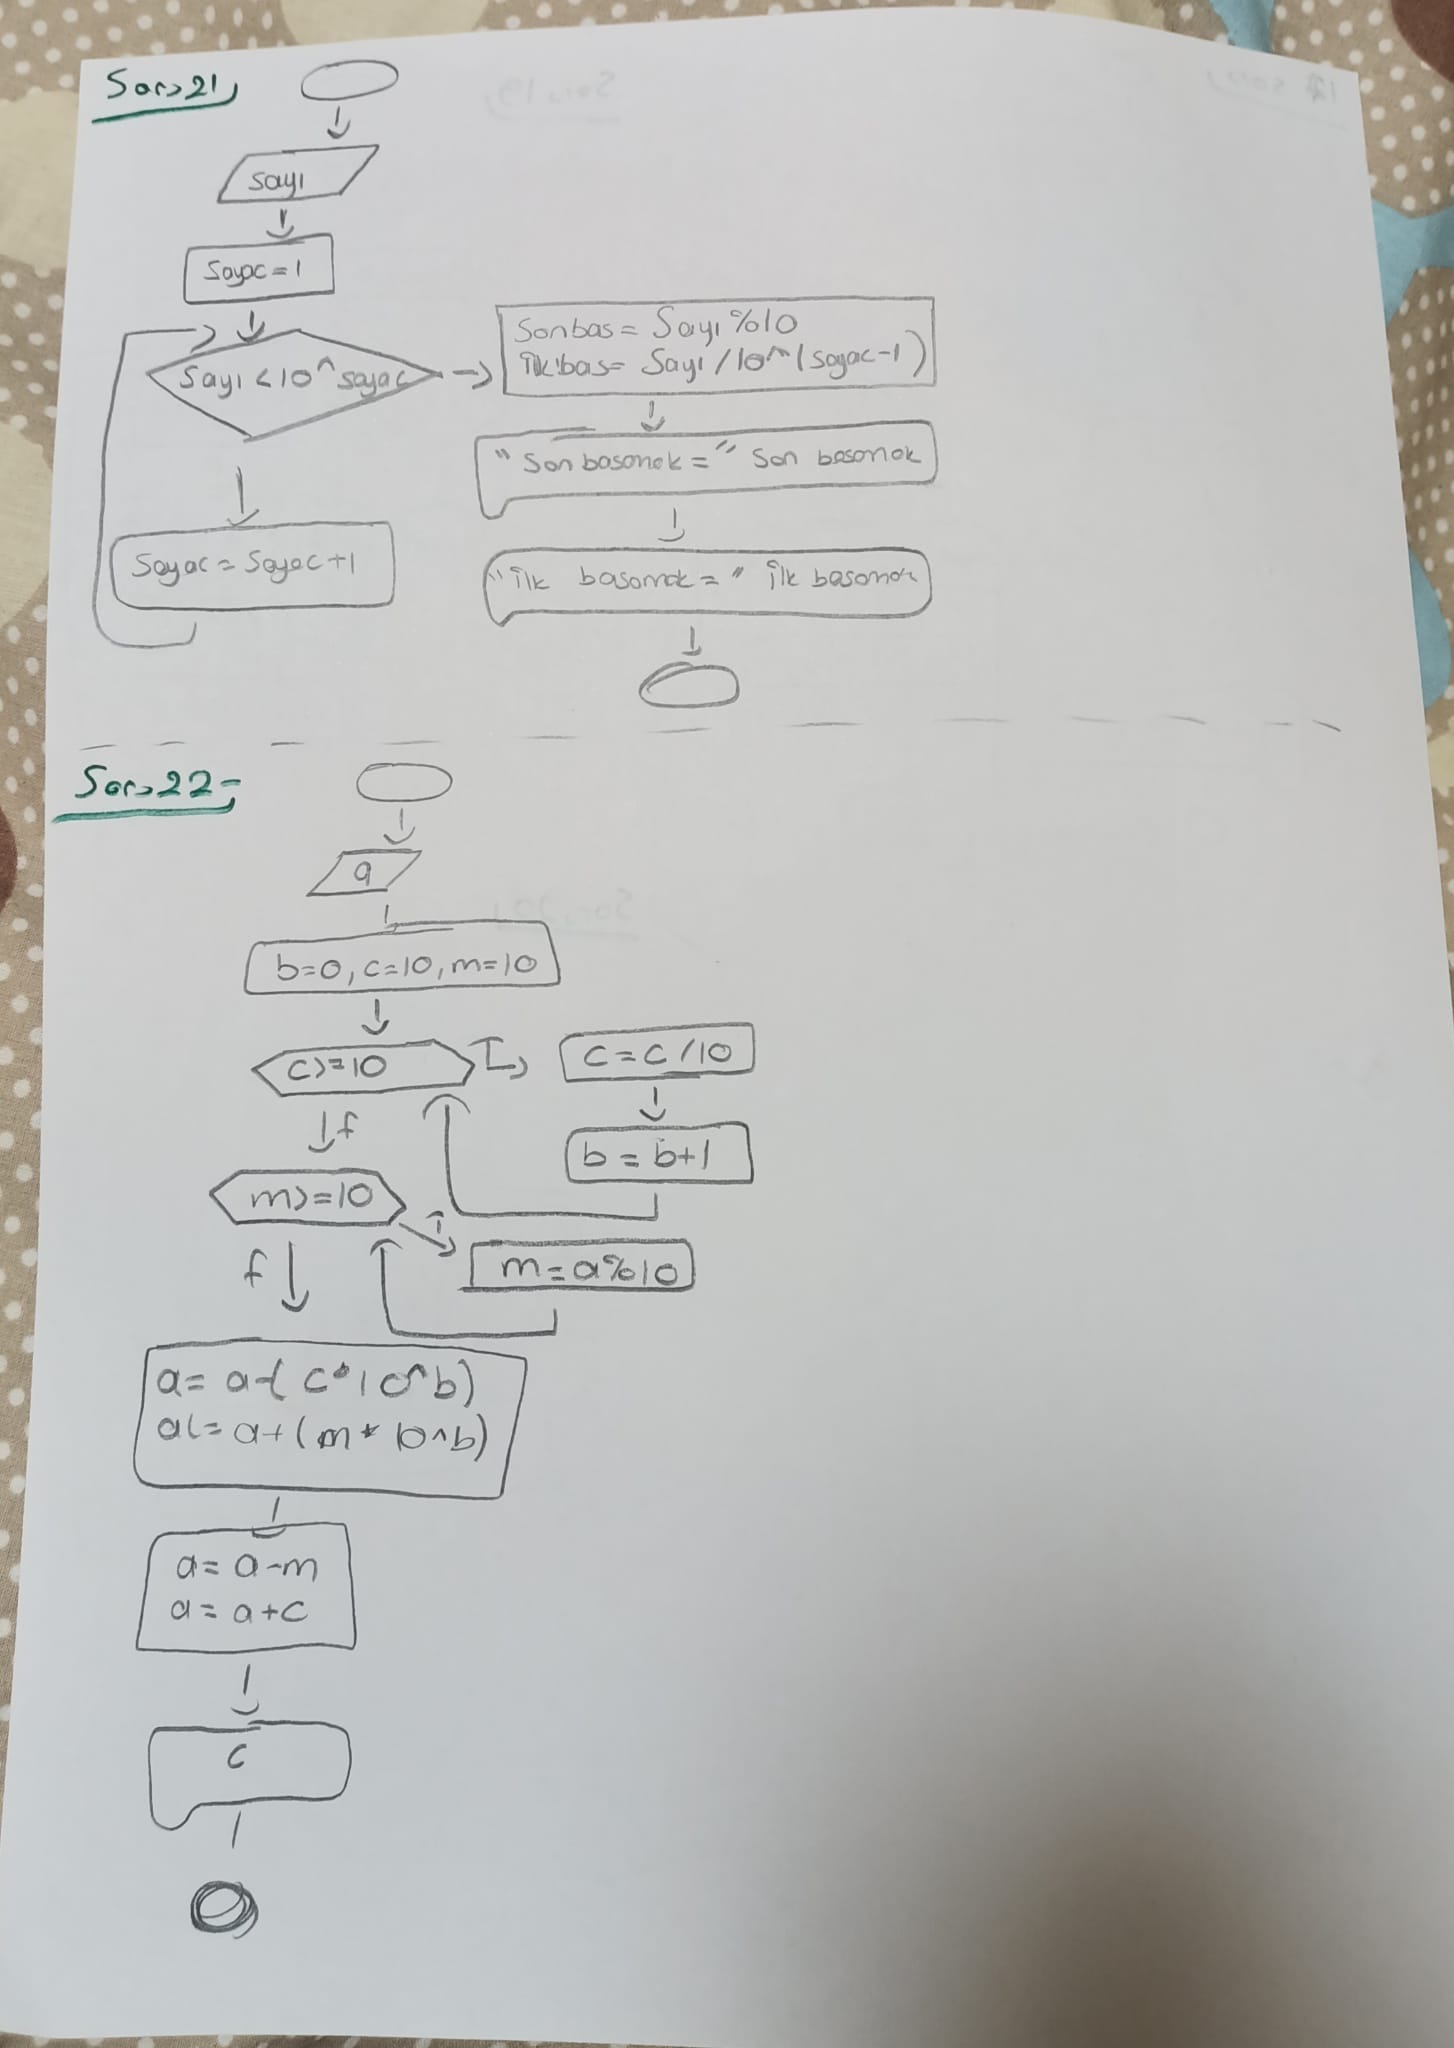 Soru21,
sayı
Sayac=1
Sayı<10^sayac
Sonbas= Sayı%10
ilkbas= Sayı/10^(sayac-1)
"Son basamak=" Son basamak
Sayac=Sayac+1
"ilk basamak=" ilk basamak
Soru22-
a
b=0, c=10, m=10
c>=10
T
c=c/10
f
b=b+1
m>=10
T
m=a%10
f
a=a-(c*10^b)
a(=a+(m*10^b)
a=a-m
a=a+c
c